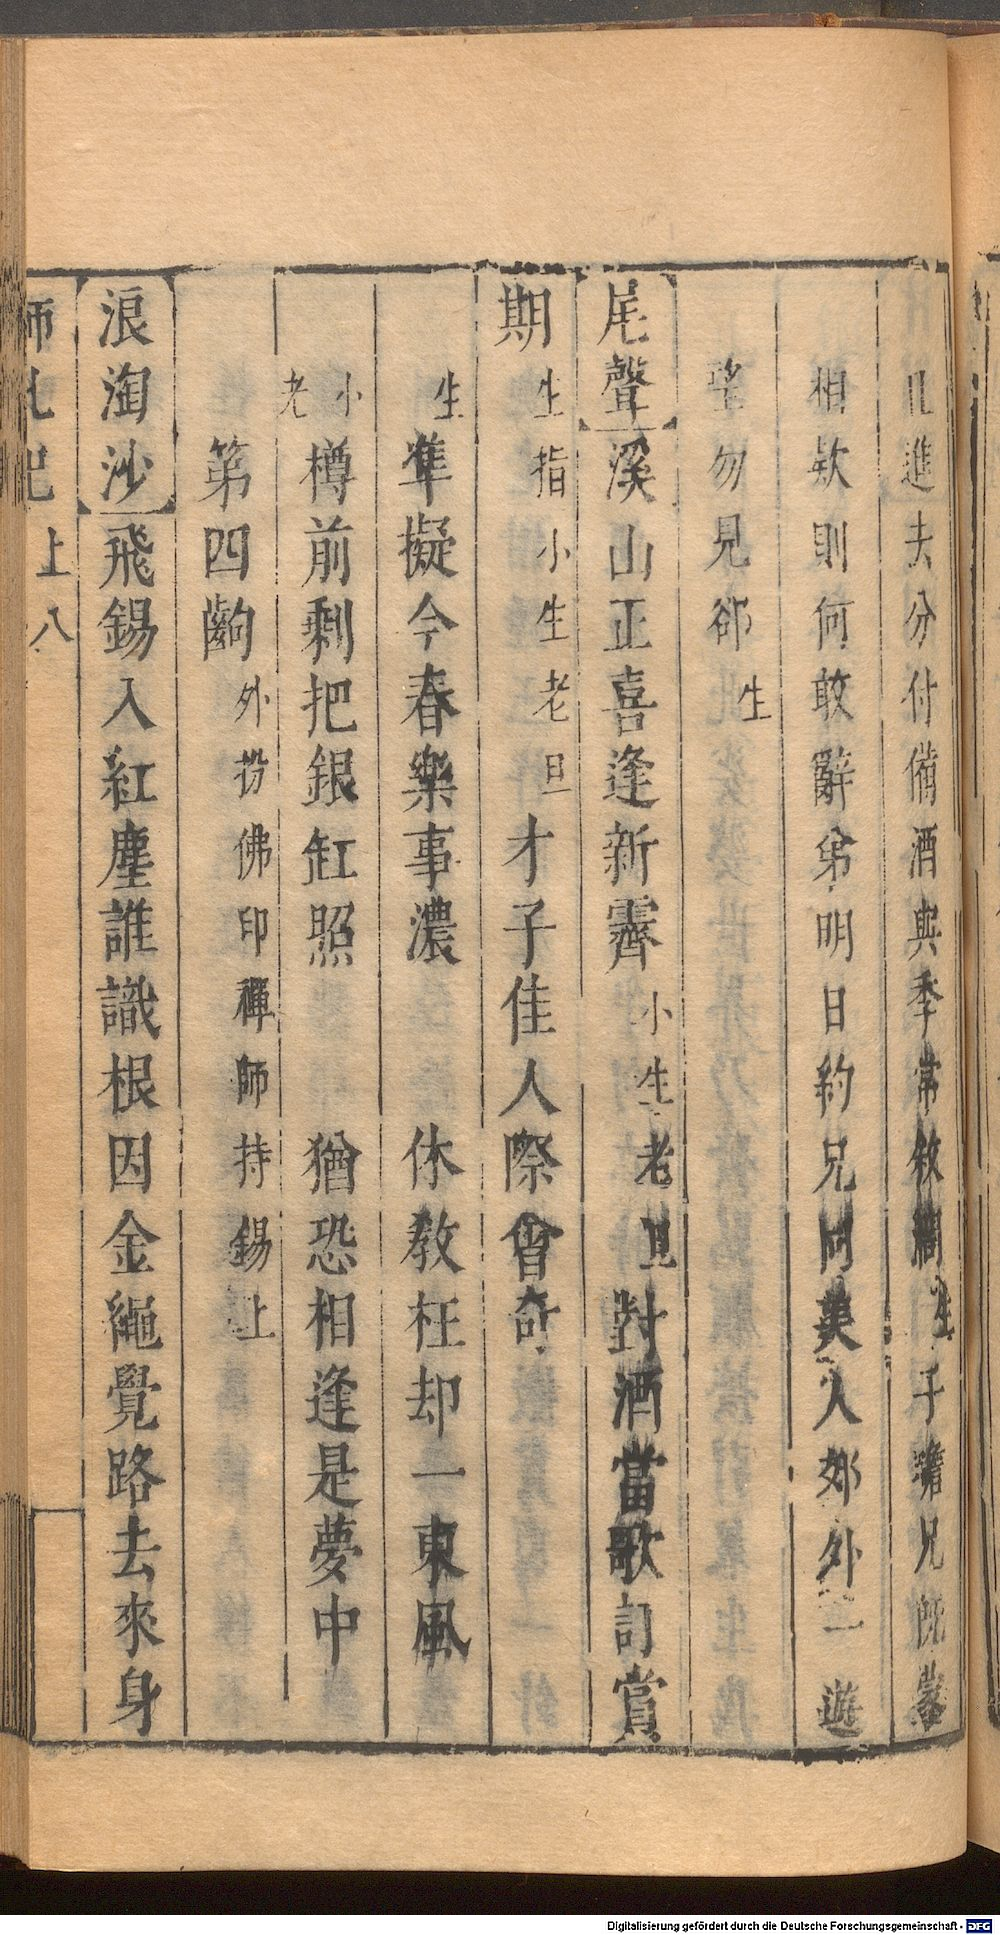 且進去分付備酒與季常敘闊生子瞻兄既蒙
相欵則何敢辭弟明日約兄同美人郊外一遊
望勿見郤生
尾聲溪山正喜逢新霽小生老旦對酒當歌訂賞
期生指小生老旦才子佳人際會奇
生準擬今春樂事濃 休教枉却一東風
小老樽前剩把銀缸照 猶恐相逢是夢中
第四齣外扮佛印禪師持錫上
浪淘沙飛錫入紅塵誰識根因金繩覺路去來身
師 記 上 八
Digitalisierung gefördert durch die Deutsche Forschungsgemeinschaft - DFG